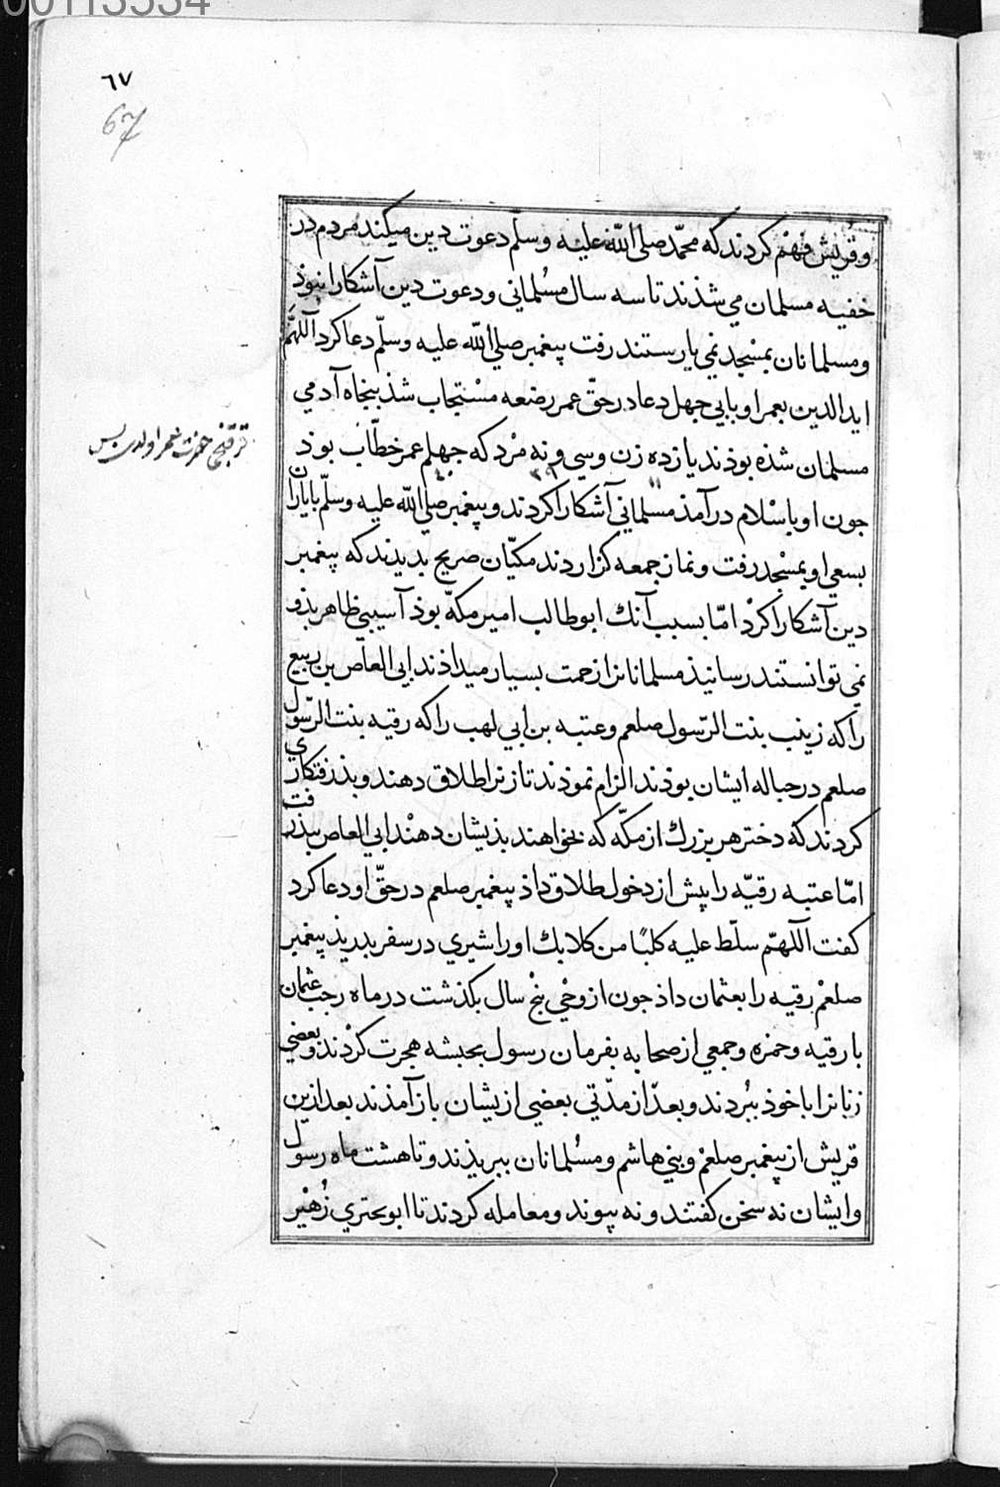 00113534
٦٧
67
وقریش فهم کردند که محمّد صلی الله علیه وسلم دعوت دین میکند مردم در
خفیه مسلمان می شذند تا سه سال مسلمانی و دعوت دین آشکارا نبوذ
ومسلمانان بمسجد نمی یارستند رفت پیغمبر صلی الله علیه وسلّم دعا کرد اللهمّ
اید الدین بعمر او بابی جهل دعا در حقّ عمر رضعه مستجاب شذ پنجاه آدمی
مسلمان شذه بوذند یازده زن وسی و نه مرد که جهلم عمر خطّاب بوذ
١١ ٣٩ ٤٠
جون او باسلام درآمذ مسلمانی آشکارا کردند و پیغمبر صلی الله علیه وسلّم بایاران
بسعی او بمسجد رفت ونماز جمعه کزاردند مکیّان صریح بدیدند که پیغمبر
دین آشکارا کرد امّا بسبب آنك ابوطالب امیر مکّه بوذ آسیبی ظاهر بذو
نمی توانستند رسانیذ مسلمانانرا زحمت بسیار میداذند ابی العاص بن ربیع
را که زینب بنت الرّسول صلعم وعتبه بن ابی لهب را که رقیه بنت الرّسول
صلعم در حباله ایشان بوذند الزام نموذند تا زنرا طلاق دهند و بذرفتکاری
کردند که دختر هر بزرك از مکّه که بخواهند بذیشان دهند ابی العاص نپذرفت
امّا عتبه رقیّه را پیش از دخول طلاق داذ پیغمبر صلعم در حقّ او دعا کرد
کفت اللهمّ سلّط علیه کلبًا من کلابك او را شیری در سفر بدریذ پیغمبر
صلعم رقیه را بعثمان داذ جون از وحی پنج سال بکذشت در ماه رجب عثمان
با رقیه وحمزه وجمعی از صحابه بفرمان رسول بحبشه هجرت کردند و بعضی
زنانرا با خوذ ببردند و بعد از مدّتی بعضی ازیشان باز آمذند بعد ازین
قریش از پیغمبر صلعم و بنی هاشم و مسلمانان ببریذند و تا هشت ماه رسول
وایشان نه سخن کفتند و نه پیوند ومعامله کردند تا ابو بحتری زهیر
حضرت عمر اولدی